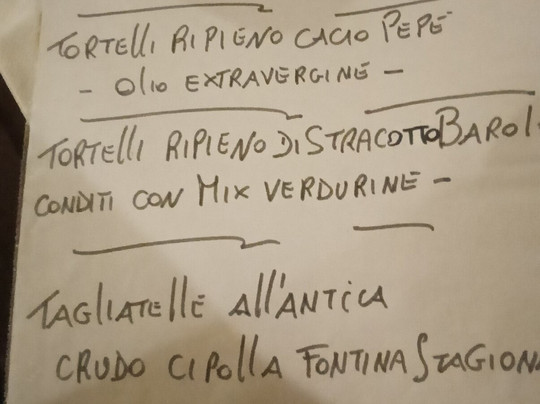 TORTELLI RIPIENO CACIO PEPE
- OLIO EXTRAVERGINE -
TORTELLI RIPIENO DI STRACOTTO BAROL
CONDITI CON MIX VERDURINE -
TAGLIATELLE ALL'ANTICA
CRUDO CIPOLLA FONTINA STAGION